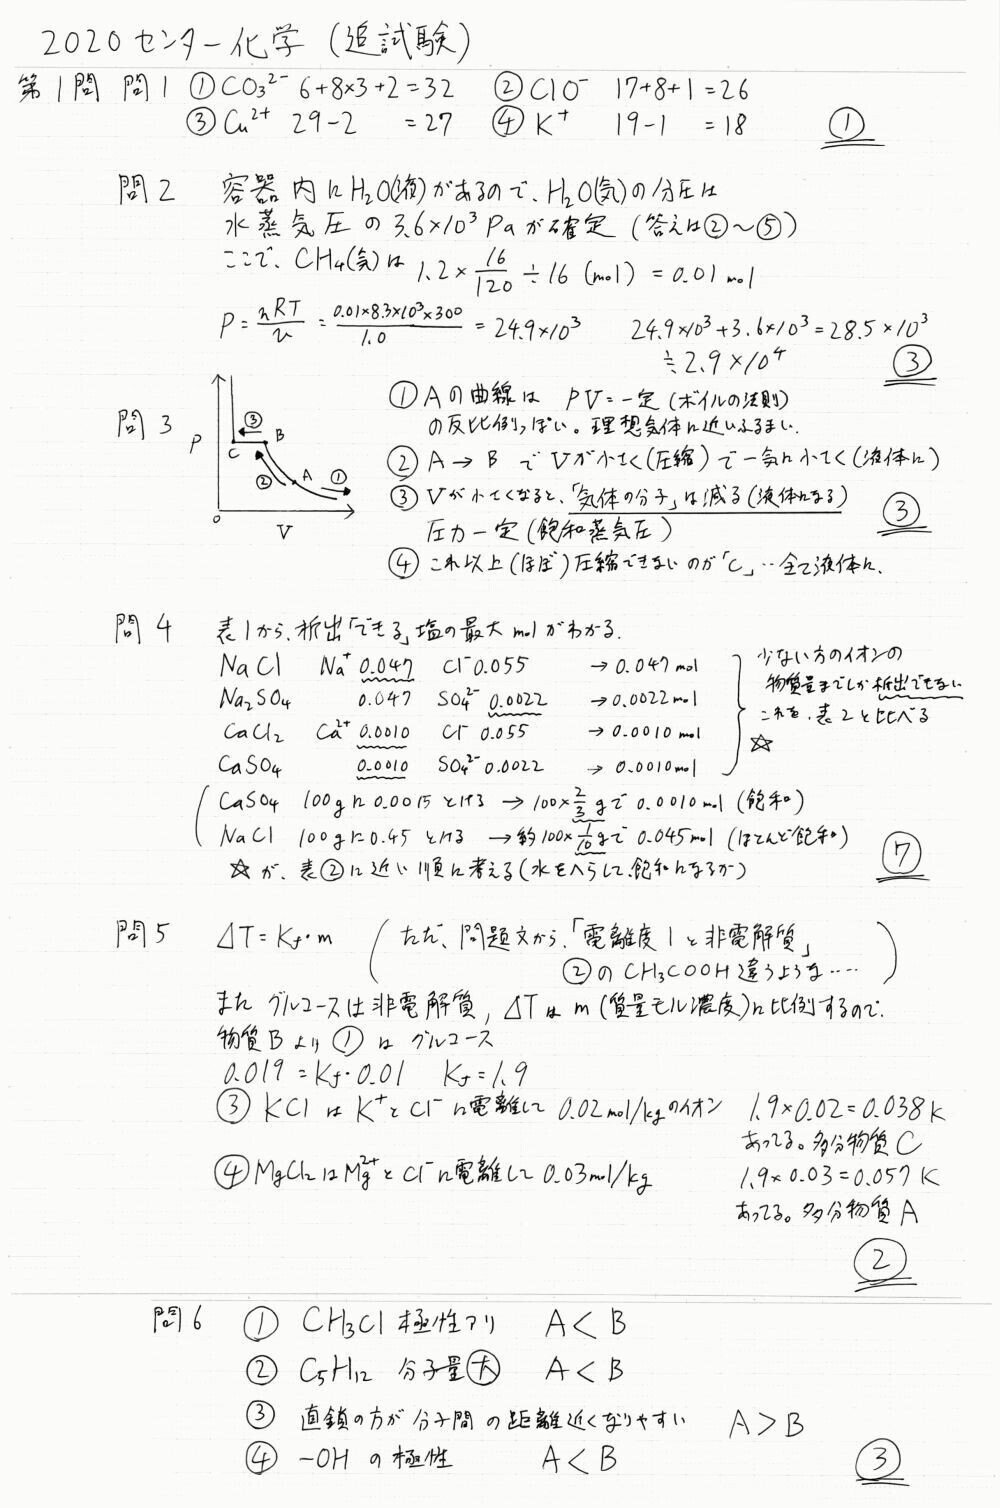 2020 センター化学 (追試験)
第1問 問1 ① CO₃²⁻ 6+8×3+2=32 ② ClO⁻ 17+8+1=26
③ Cu²⁺ 29-2 =27 ④ K⁺ 19-1 =18 ①
問2 容器内にH₂O(液)があるので、H₂O(気)の分圧は
水蒸気圧の3.6×10³Paが確定 (答えは②～⑤)
ここで、CH₄(気)は 1.2×16/120÷16 (mol) = 0.01 mol
P=nRT/v = 0.01×8.3×10³×300/1.0 = 24.9×10³ 24.9×10³+3.6×10³=28.5×10³
≒2.9×10⁴ ③
問3 P C B A V 0 ① ② ③
① Aの曲線は PV=一定 (ボイルの法則)
の反比例っぽい。理想気体に近いふるまい。
② A→B でVが小さく(圧縮)で一気に小さく(液体に)
③ Vが小さくなると、「気体の分子」は減る(液体になる)
圧力一定(飽和蒸気圧) ③
④ これ以上(ほぼ)圧縮できないのが「C」‥全て液体に、
問4 表1から、析出「できる」塩の最大molがわかる。
NaCl Na⁺ 0.047 Cl⁻ 0.055 →0.047mol
Na₂SO₄ 0.047 SO₄²⁻ 0.0022 →0.0022mol
CaCl₂ Ca²⁺ 0.0010 Cl⁻ 0.055 →0.0010mol
CaSO₄ 0.0010 SO₄²⁻ 0.0022 →0.0010mol
少ない方のイオンの
物質量までしか析出できない
これを、表2と比べる
☆
CaSO₄ 100gに0.0015とける →100×2/3gで0.0010mol(飽和)
NaCl 100gに0.45とける →約100×1/10gで0.045mol(ほとんど飽和)
☆が、表②に近い順に考える(水をへらして、飽和になるか) ⑦
問5 ΔT=Kf・m (ただ、問題文から、「電離度1と非電解質」
②のCH₃COOH違うような‥‥)
また グルコースは非電解質, ΔTはm(質量モル濃度)に比例するので、
物質Bより①はグルコース
0.019=Kf・0.01 Kf=1.9
③ KClはK⁺とCl⁻に電離して 0.02mol/kgのイオン 1.9×0.02=0.038K
あってる。多分物質C
④ MgCl₂はMg²⁺とCl⁻に電離して 0.03mol/kg 1.9×0.03=0.057K
あってる。多分物質A
②
問6 ① CH₃Cl 極性アリ A<B
② C₅H₁₂ 分子量大 A<B
③ 直鎖の方が分子間の距離近くなりやすい A>B
④ -OHの極性 A<B ③